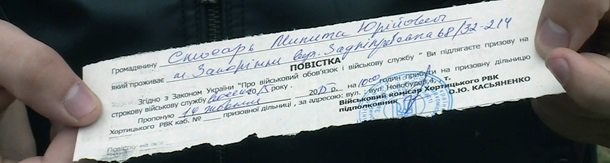 Громадянину Слюсарь Микита Юрійович
який проживає м. Запоріжжя вул. Задніпровська 68/32-214
ПОВІСТКА
Згідно з Законом України "Про військовий обов'язок і військову службу" Ви підлягаєте призову на
строкову військову службу року.
Пропоную на годин прибути на призовну дільницю
Хортицького РВК каб. № призовної дільниці, за адресою: вул.
Військовий комісар Хортицького РВК
підполковник О.Ю. КАСЬЯНЕНКО